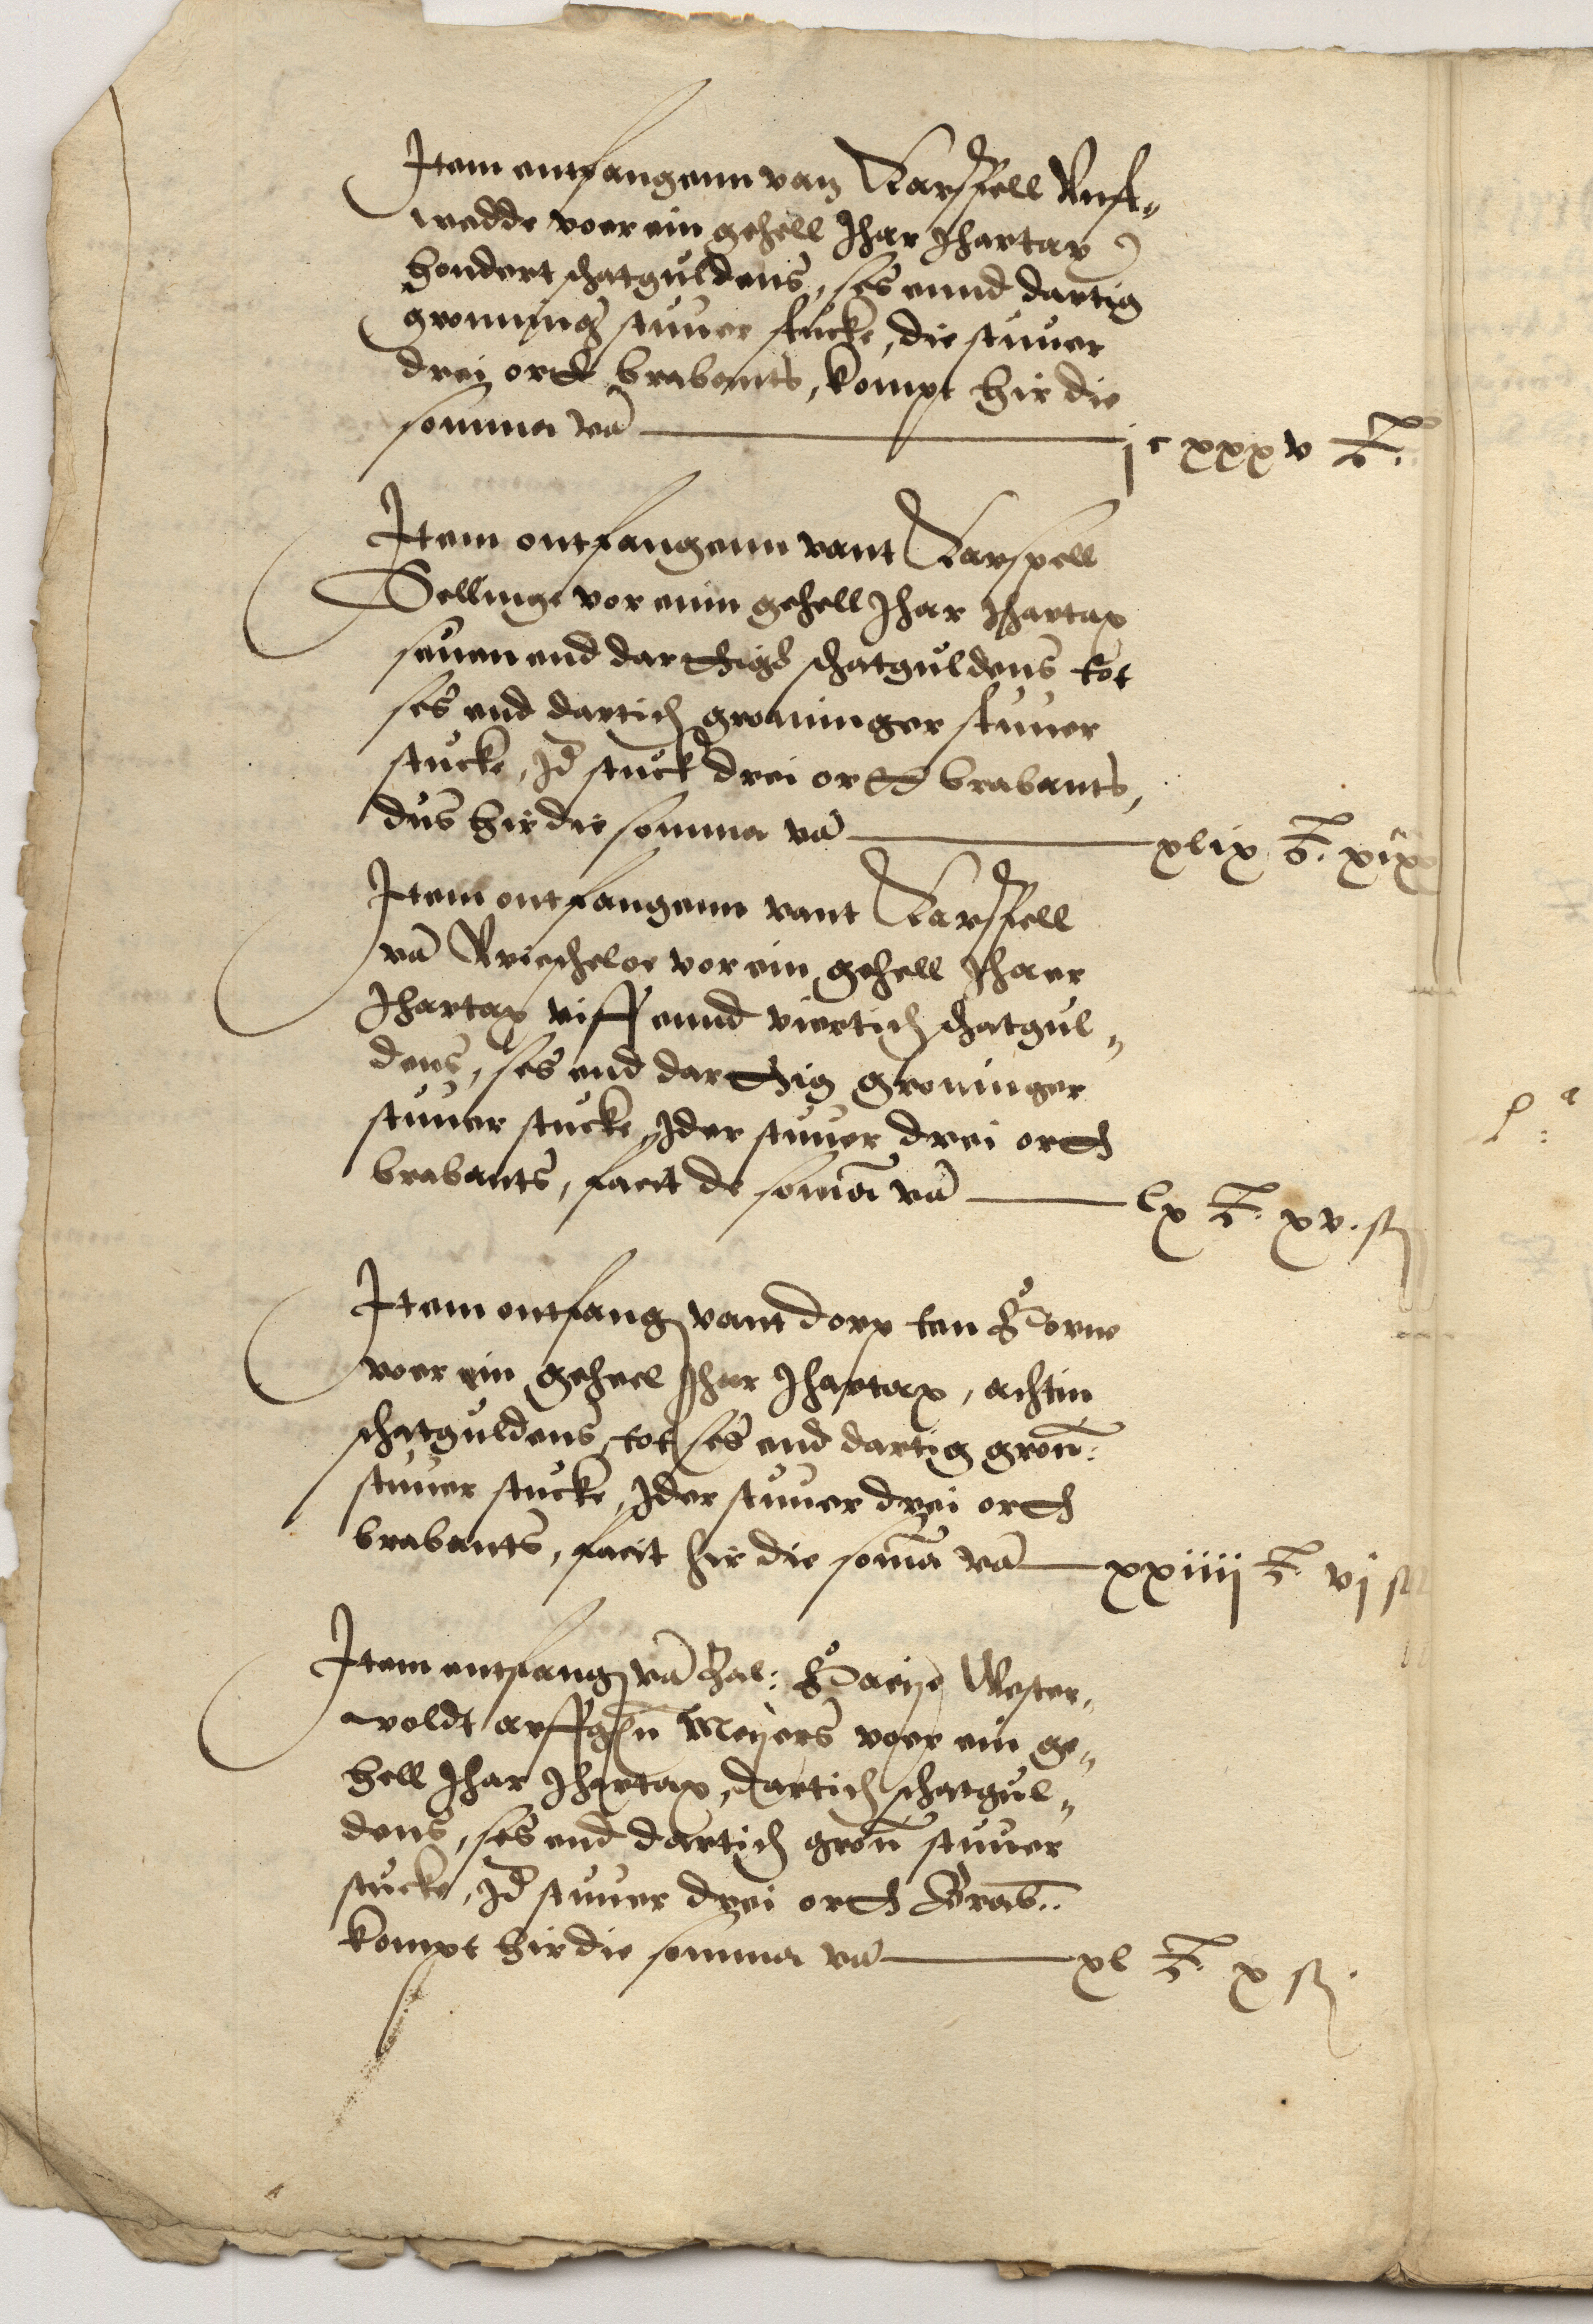 Item entfangenn van Karspell Unst-
wedde voer ein gehell Jhar Jhartax
hondert schatguldens, ses ennd dartig
groning stuver stucke, die stuver
drei orth brabants, kompt hir die
somma vā jc xxxv
Item ontfangenn vant Karspell
Sellinge vor einn gehell Jhar Jhartax
seuen end darthigh schatguldens tot
ses end dartich groninger stuver
stucke, Jd stuck drei orth brabants,
dus hir die somma vā xlix
Item ontfangenn vant Karspell
vā Vriescheloe vor ein gehell Jhaer
Jhartax viff ennd viertich schatgul-
dens, ses end darthig groninger
stuver stucke, Jder stuver drei orth
brabants, facit de somā vā lx xv. st
Item ontfang vant dorp ten Horne
voer ein geheel Jhar Jhartax, achtin
schatguldens, tot ses end dartig gron:
stuver stucke, Jder stuver drei orth
brabants, facit hir die somā vā xxiiij vj st
Item entfang vā zal: Haije Wester-
woldt arffgn Meijers voer ein ge-
hell Jhar Jhartax, dartich schatgul-
dens, ses end dartich gron stuver
stucke, Jd stuver drei orth Brab..
kompt hir die somma vā xl x st